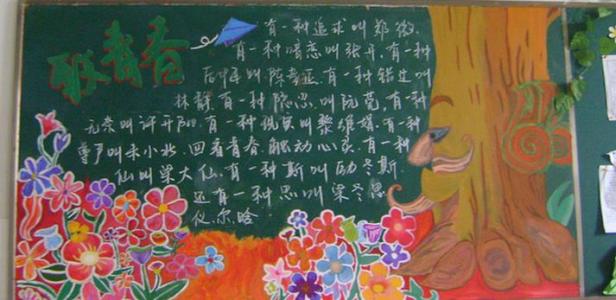 致青春
有一种追求叫郑微,
有一种暗恋叫张开,有一种
后悔叫陈孝正,有一种错过叫
林静,有一种隐忍叫阮莞,有一种
无奈叫许开阳,有一种现实叫黎维娟,有一种
尊严叫朱小北,回看青春,触动心 有一种
仙叫梁大仙,有一种斯叫 冬斯
还有一种思叫梁冬思